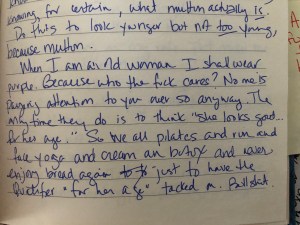 knowing, for certain, what mutton actually is.
Do this to look younger but not too young,
because mutton.
When I am an old woman I shall wear
purple. Because who the fuck cares? No one is
paying attention to you over 50 anyway. The
only time they do is to think "she looks good...
for her age." So we all pilates and run and
face yoga and cream an botox and never
enjoy bread again to just to have the
qualifier "for her age" tacked on. Bullshit.